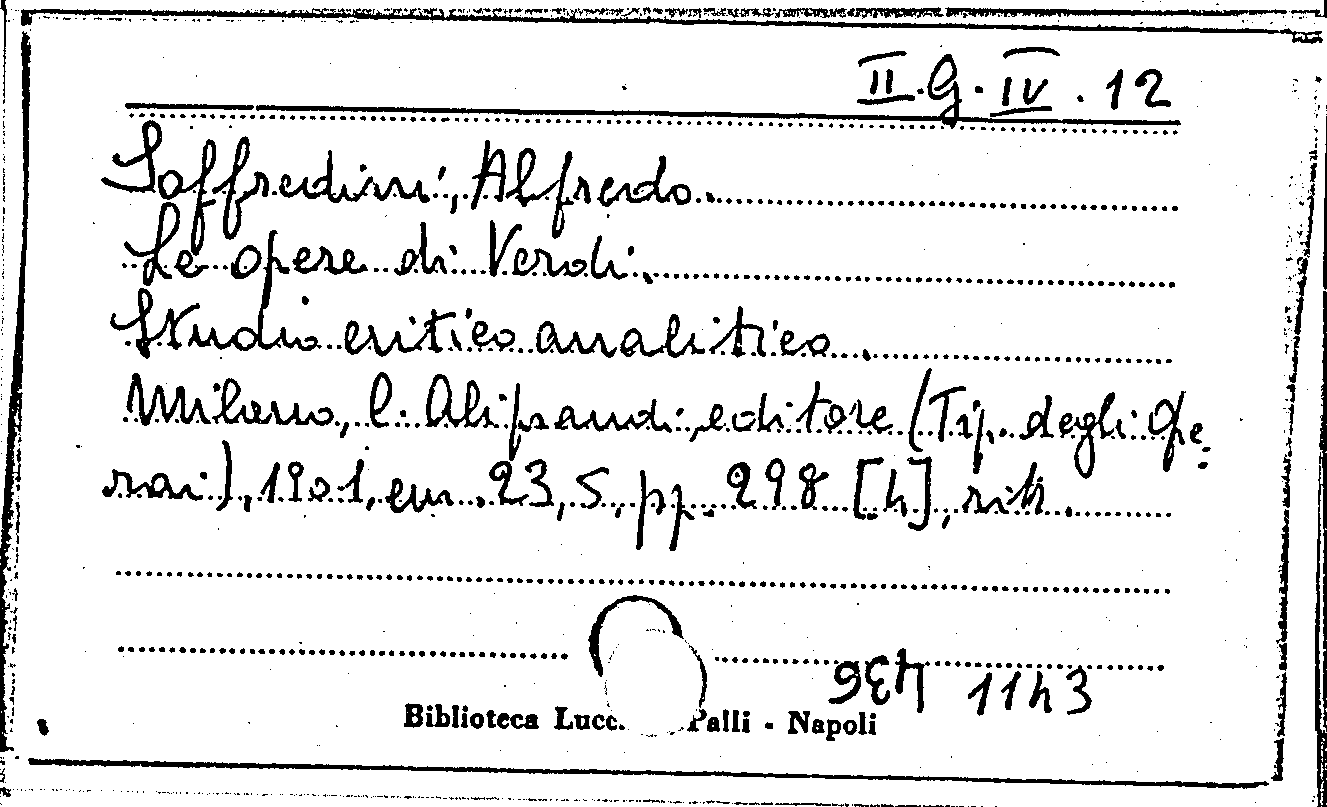 II.G.IV.12
Soffredini, Alfredo.
Le opere di Verdi.
Studio critico analitico.
Milano, C. Aliprandi, editore (Tip. degli Ope-
rai), 1901, cm. 23,5, pp. 298 [4], ritr.
436 1143
Biblioteca Lucc. Palli - Napoli